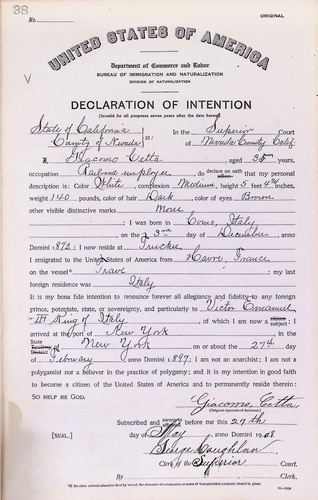 38
No.
ORIGINAL
UNITED STATES OF AMERICA
Department of Commerce and Labor
BUREAU OF IMMIGRATION AND NATURALIZATION
DIVISION OF NATURALIZATION
DECLARATION OF INTENTION
(Invalid for all purposes seven years after the date hereof)
State of California ss: In the Superior Court
County of Nevada of Nevada County Calif
I, Giacomo Cetta, aged 35 years,
occupation Railroad employee, do declare on oath that my personal
description is: Color White, complexion Medium, height 5 feet 4½ inches,
weight 140 pounds, color of hair Dark, color of eyes Brown
other visible distinctive marks None
; I was born in Como, Italy
on the 3rd day of December, anno
Domini 1872; I now reside at Truckee
I emigrated to the United States of America from Havre, France
on the vessel Trave; my last
foreign residence was Italy
It is my bona fide intention to renounce forever all allegiance and fidelity to any foreign
prince, potentate, state, or sovereignty, and particularly to Victor Emanuel
III King of Italy, of which I am now a subject; I
arrived at the port of New York, in the
State of New York on or about the 27th day
of February, anno Domini 1897; I am not an anarchist; I am not a
polygamist nor a believer in the practice of polygamy; and it is my intention in good faith
to become a citizen of the United States of America and to permanently reside therein:
SO HELP ME GOD.
Giacomo Cetta
(Original signature of declarant.)
Subscribed and sworn to before me this 27th
[SEAL.] day of May, anno Domini 1908
George Coughlan
Clerk of the Superior Court.
By, Clerk.